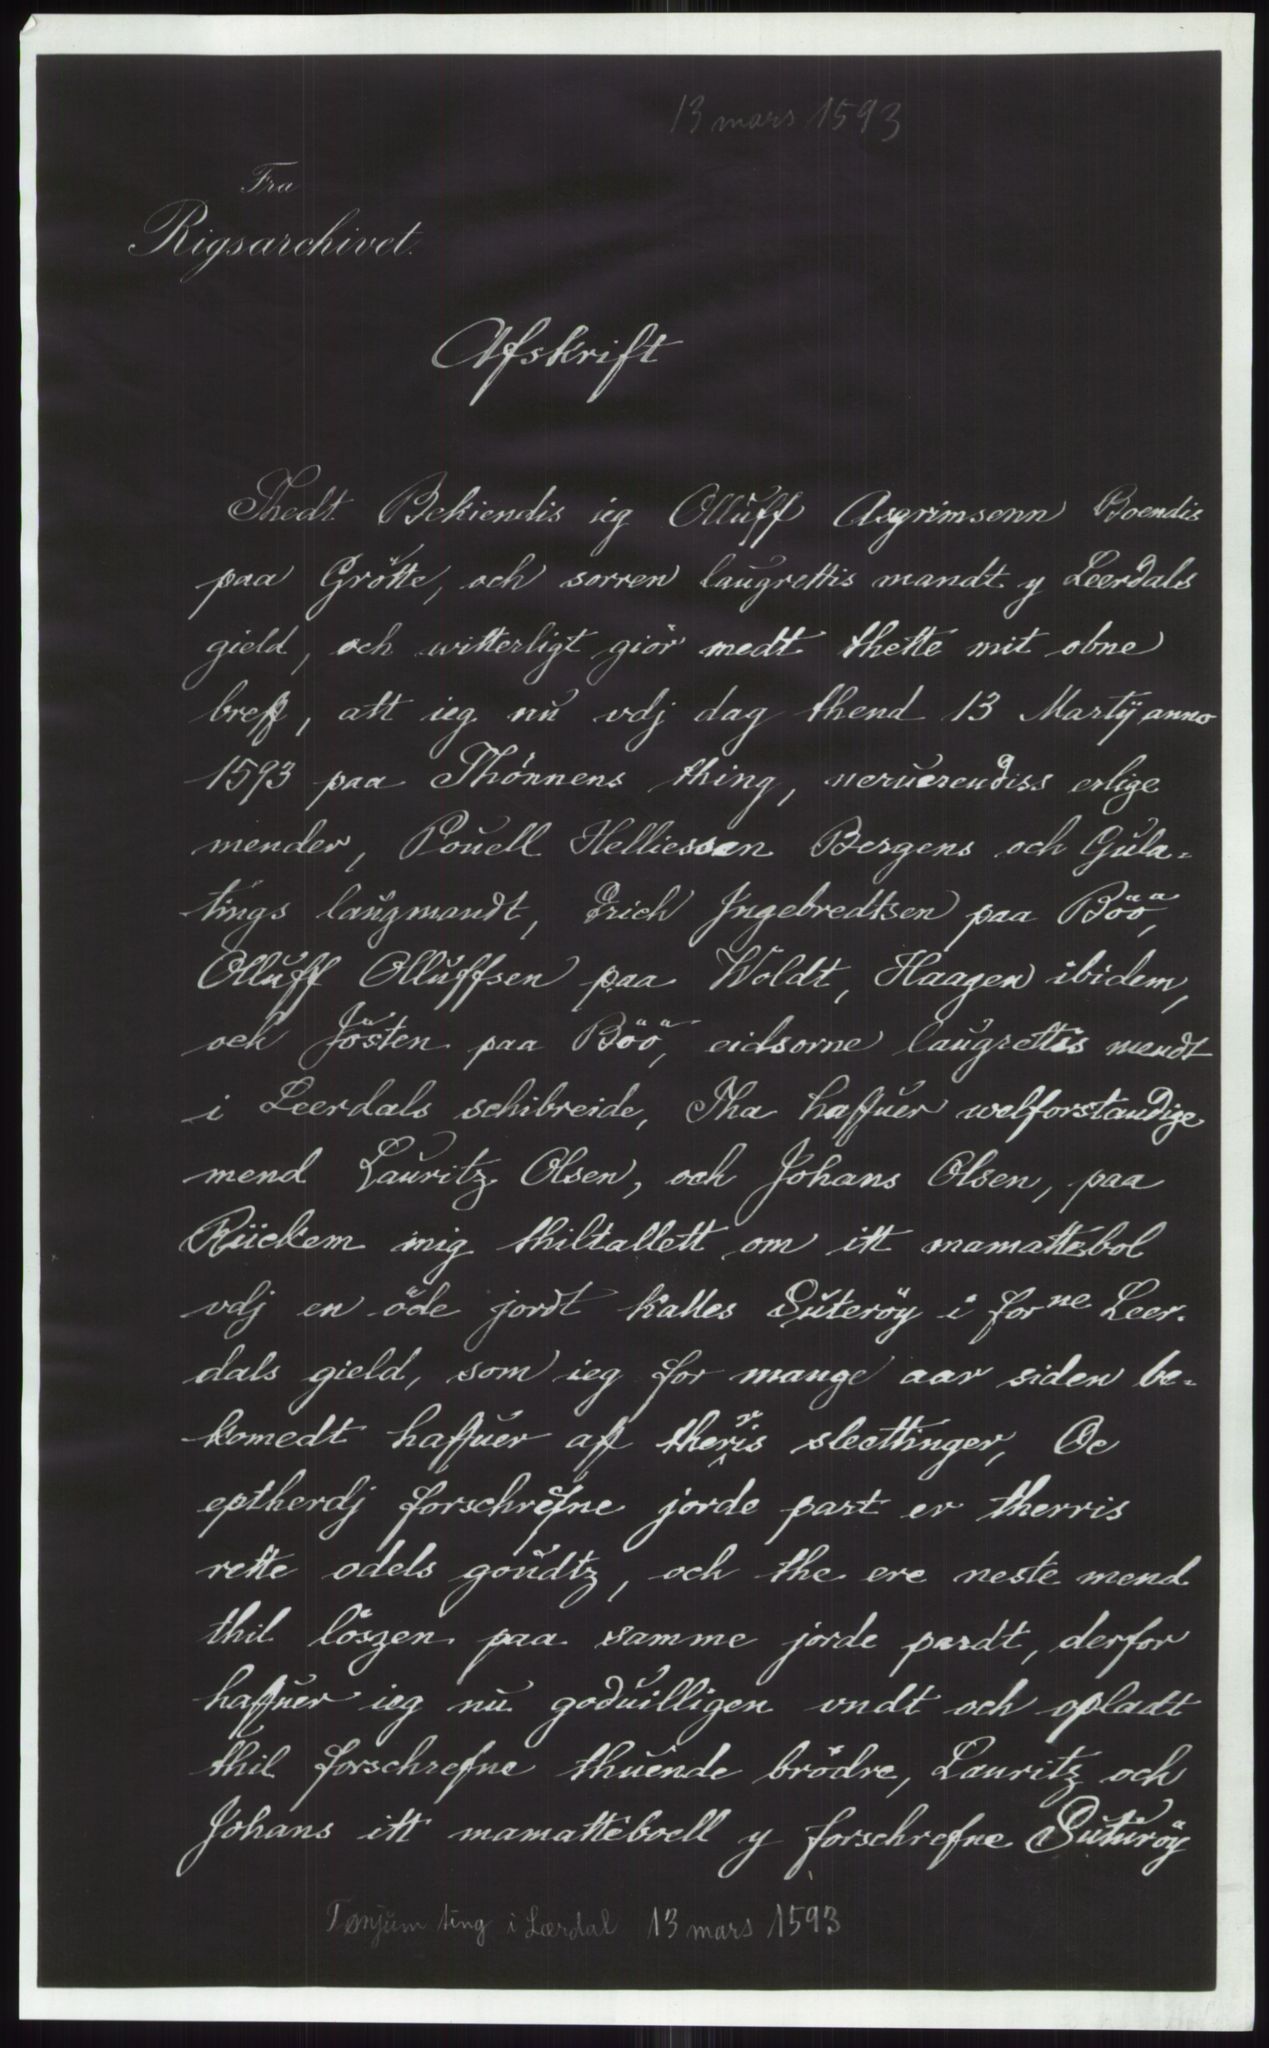 13 mars 1593
Fra
Rigsarchivet.
Afskrift
Thedt Bekiendis ieg Olluff Asgrimsenn Boendis
paa Grötte, och sorren laugrettis mandt y Leerdals
gield, och witterligt giör medt thette mit obne
breff, att ieg nu vdj dag thend 13 Martÿ anno
1593 paa Thönnens thing, neruerendiss erlige
mender, Pouell Helliessen Bergens och Gula-
tings laugmandt, Erich Jngebredtsen paa Böö,
Olluff Olluffsen paa Woldt, Haagen ibidem,
och Jösten paa Böö, eidsorne laugrettis mendt
i Leerdals schibreide, Tha haffuer welforstandige
mend Lauritz Olsen, och Johans Olsen, paa
Rückem mig thiltallett om itt mamattebol
vdj en öde jordt kalles Suteröy i forne Leer-
dals gield, som ieg for mange aar siden be-
komedt haffuer aff therris slecttinger, Oc
eptherdj forschrefne jorde part er therris
rette odels goudtz, och the ere neste mend
thil löszen paa samme jorde pardt, derfor
haffuer ieg nu goduilligen vndt och opladt
thil forschrefne thuende brödre, Lauritz och
Johans itt mamatteboell y forschrefne Suturöy
Tønjum ting i Lærdal 13 mars 1593